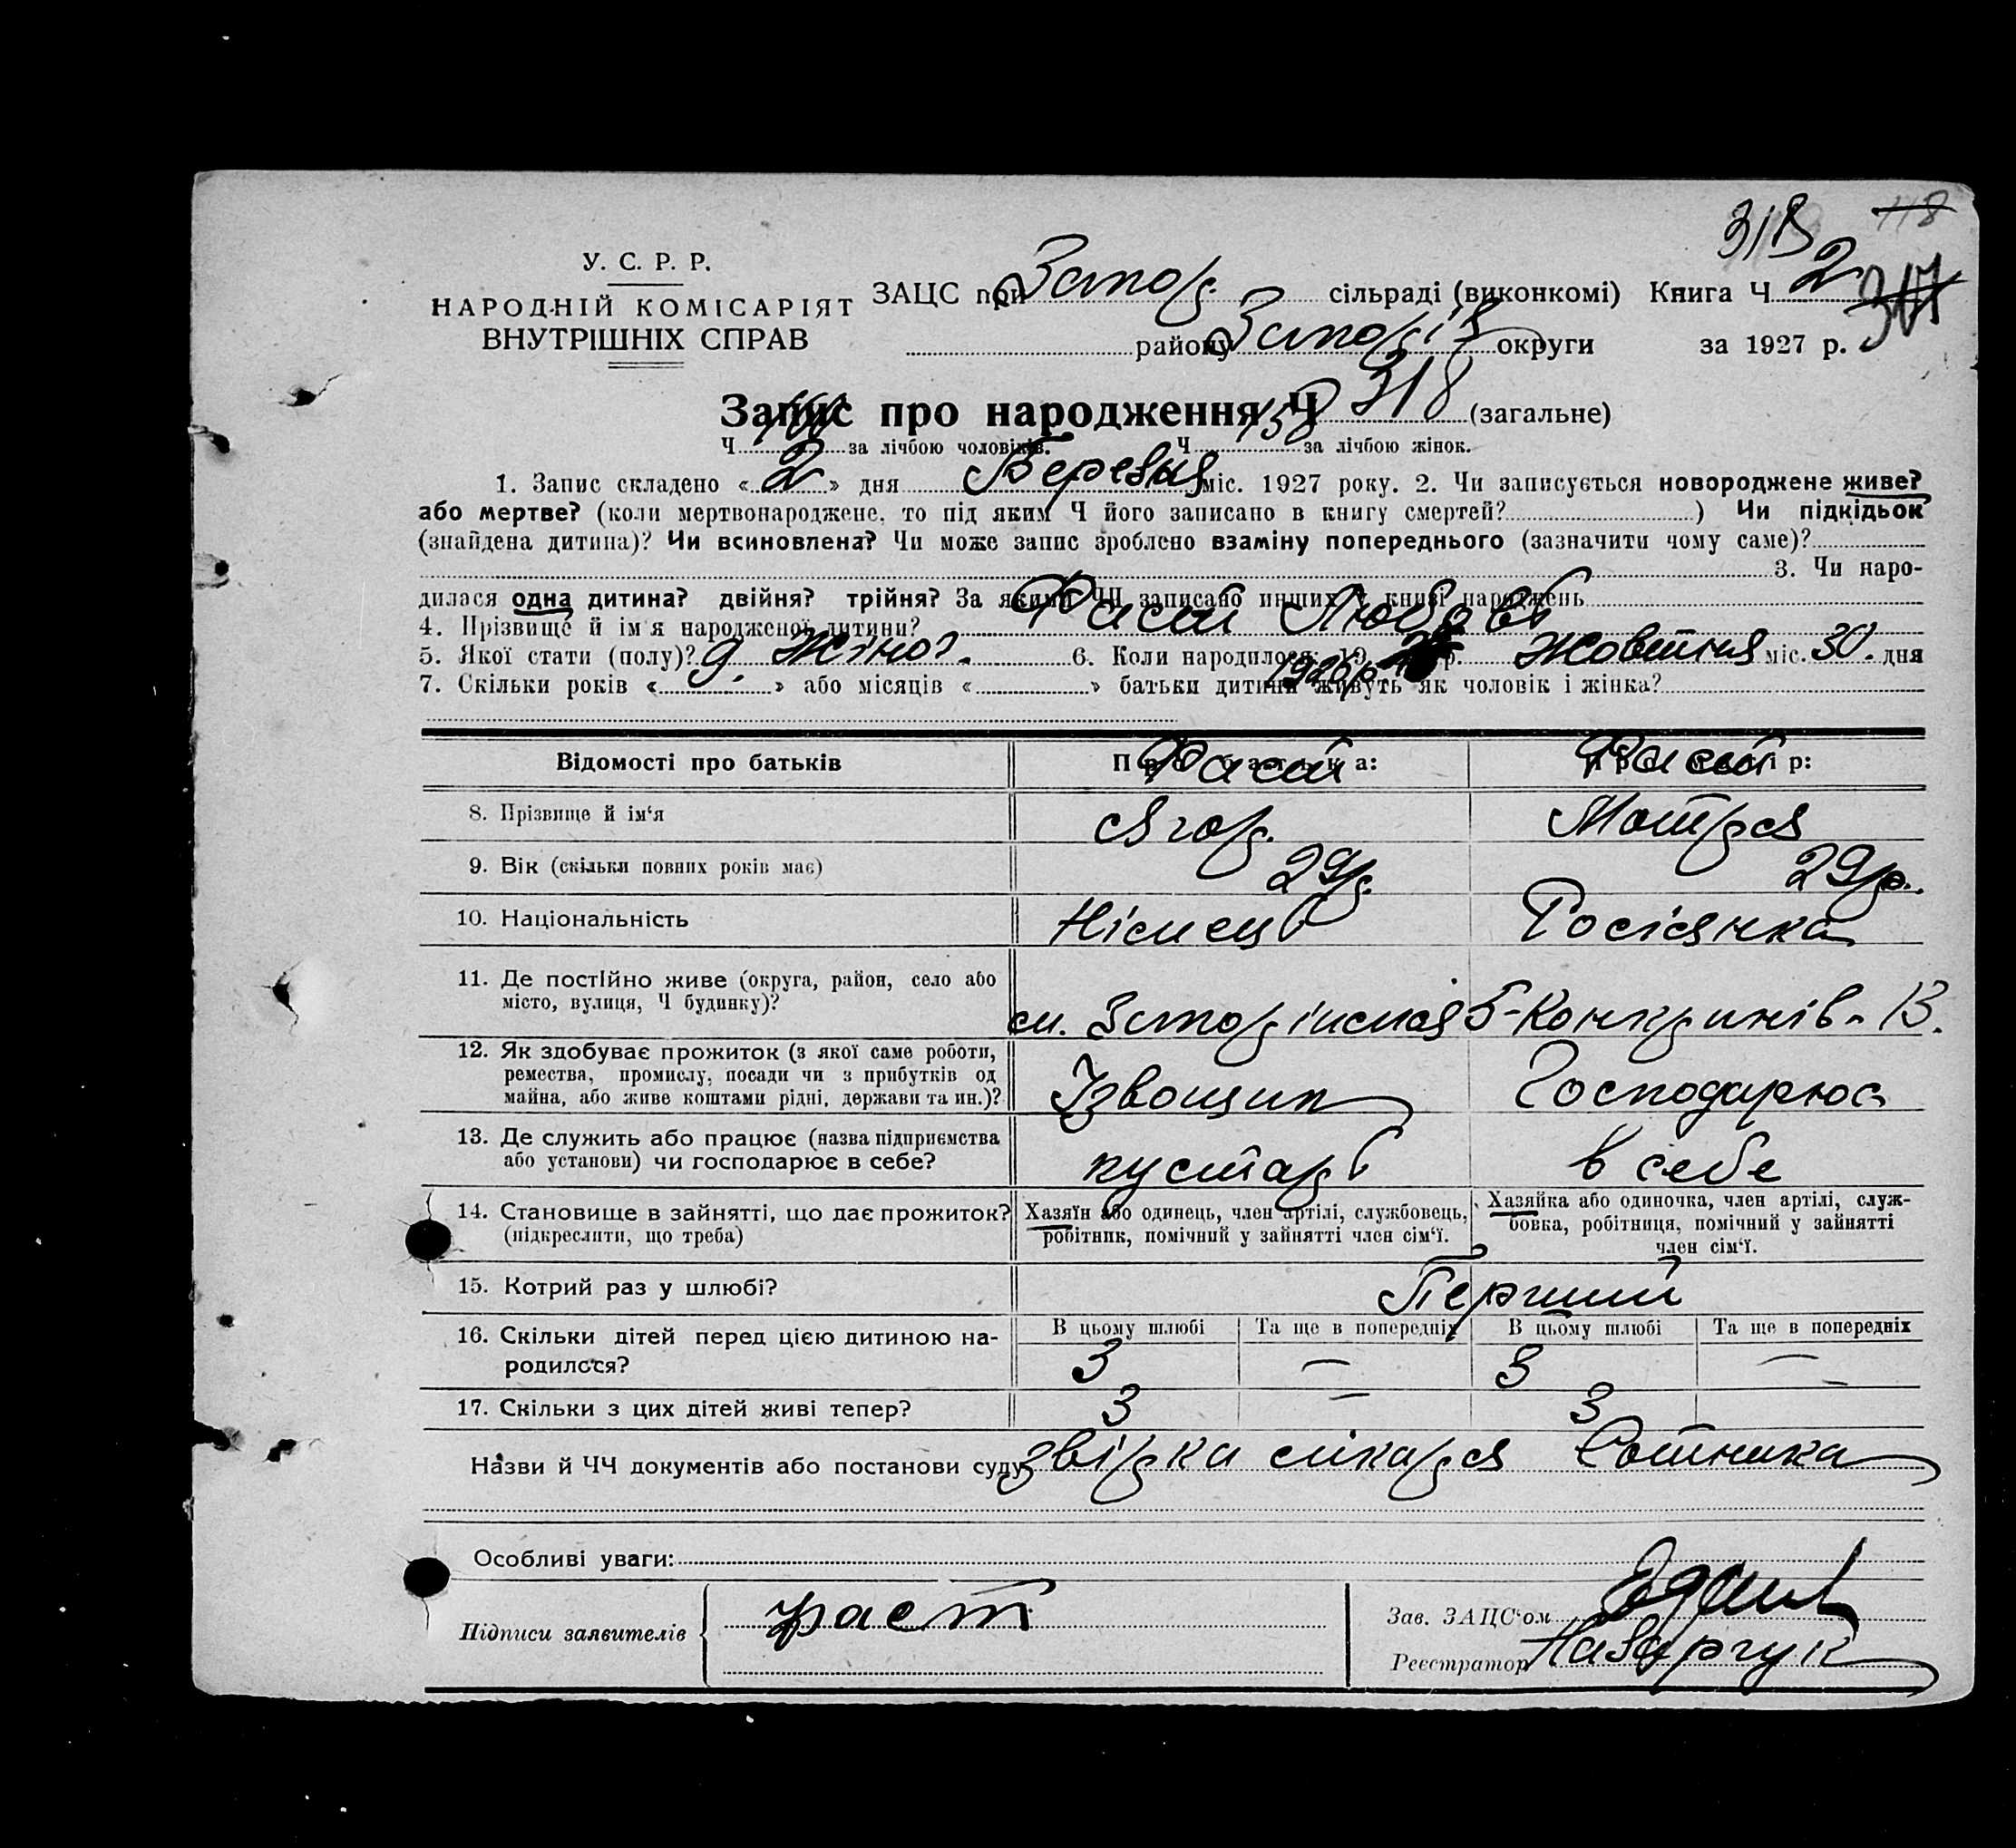 318 118
У. С. Р. Р.
НАРОДНІЙ КОМІСАРІЯТ
ВНУТРІШНІХ СПРАВ
ЗАЦС при Запор. сільраді (виконкомі) Книга Ч 2
307
району Запоріз округи за 1927 р.
Запис про народження Ч 318 (загальне)
Ч за лічбою чоловіків. Ч 158 за лічбою жінок.
1. Запис складено « 2 » дня Березня міс. 1927 року. 2. Чи записується новороджене живе?
або мертве? (коли мертвонароджене, то під яким Ч його записано в книгу смертей? ) Чи підкідьок
(знайдена дитина)? Чи всиновлена? Чи може запис зроблено взаміну попереднього (зазначити чому саме)?
3. Чи наро-
дилася одна дитина? двійня? трійня? За якими ЧЧ записано инших у книзі народжень
4. Прізвище й ім'я народженої дитини? Фаст Любовь
5. Якої стати (полу)? Жіноз. 6. Коли народилося: 19 р. Жовтня міс. 30. дня
1926 р
7. Скільки років « 9. » або місяців « » батьки дитини живуть як чоловік і жінка?
Відомості про батьків Про батька: Про матір:
Фаст Фаст
8. Прізвище й ім‘я Ягор. Мотря
9. Вік (скільки повних років має) 29р. 29р.
10. Національність Німець Росіянка
11. Де постійно живе (округа, район, село або
місто, вулиця, Ч будинку)? м. Запоріжжя Б-Конкринів- 13.
12. Як здобуває прожиток (з якої саме роботи,
ремества, промислу, посади чи з прибутків од
майна, або живе коштами рідні, держави та ин.)? Ізвощик Господарює
13. Де служить або працює (назва підприємства
або установи) чи господарює в себе? кустарь в себе
14. Становище в зайнятті, що дає прожиток?
(підкреслити, що треба)
Хазяїн або одинець, член артілі, службовець,
робітник, помічний у зайнятті член сім‘ї.
Хазяйка або одиночка, член артілі, служ-
бовка, робітниця, помічний у зайнятті
член сім‘ї.
15. Котрий раз у шлюбі? Перший
16. Скільки дітей перед цією дитиною на-
родилося?
В цьому шлюбі Та ще в попередніх В цьому шлюбі Та ще в попередніх
3 — 3 —
17. Скільки з цих дітей живі тепер? 3 — 3
Назви й ЧЧ документів або постанови суду звірка лікаря Сотника
Особливі уваги:
Підписи заявителів фаст
Зав. ЗАЦС‘ом
Реєстратор Назарчук